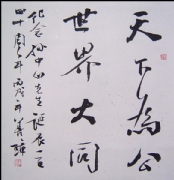 天下為公
世界大同
紀念孫中山先生誕辰一百
四十周年丙戌年